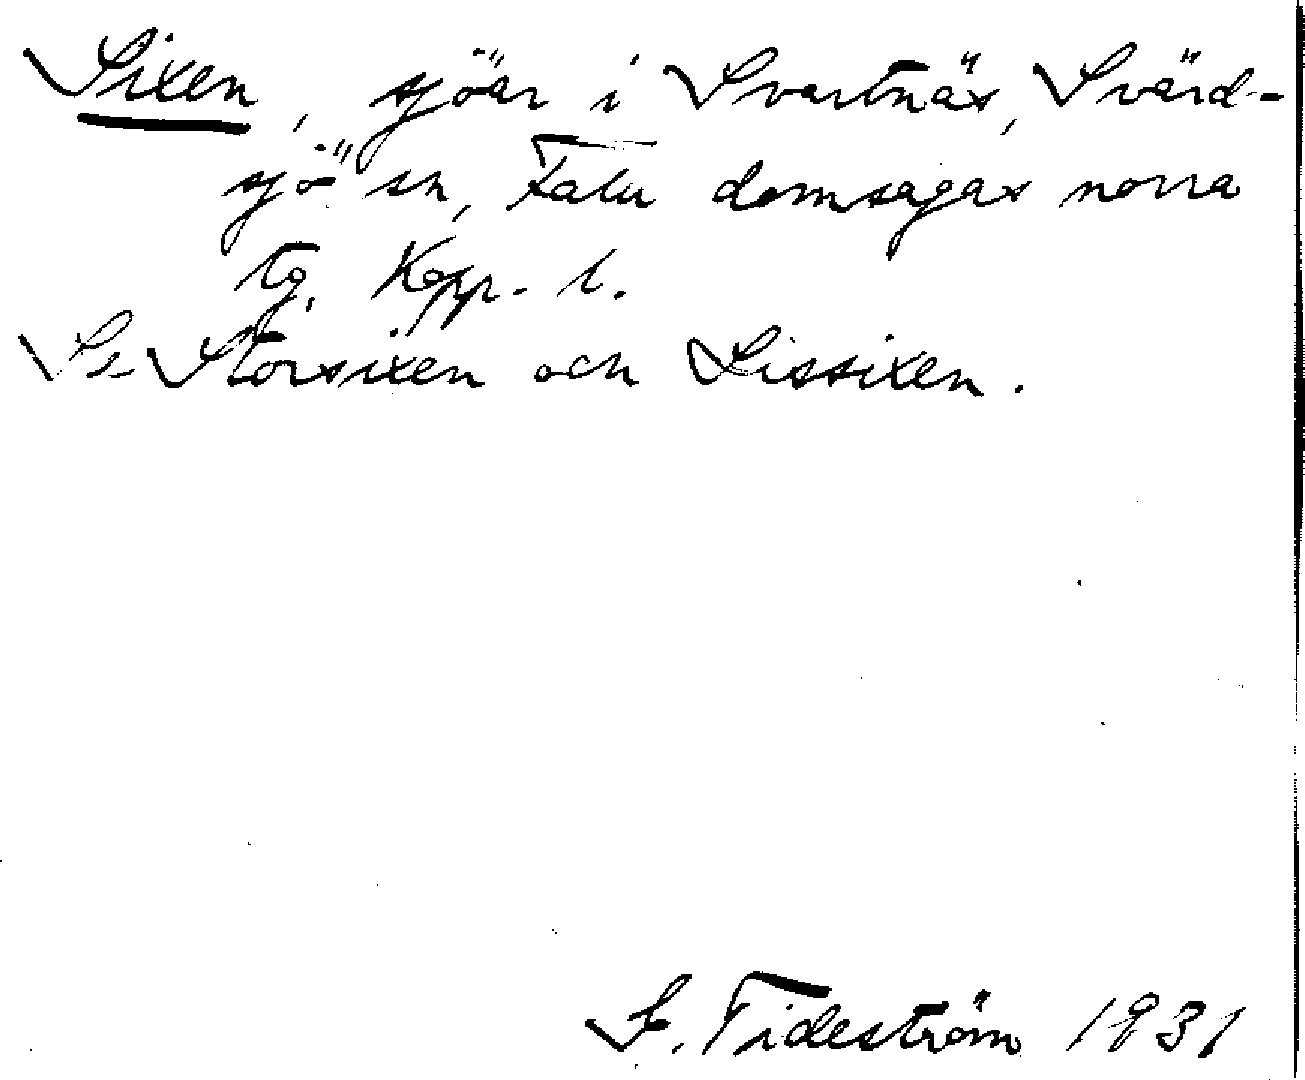 Sixen, sjöar i Svartnäs, Svärd-
sjö sn, Falu domsagas norra
tg, Kopp. l.
Se Storsixen och Lissixen.
S. Tideström 1931